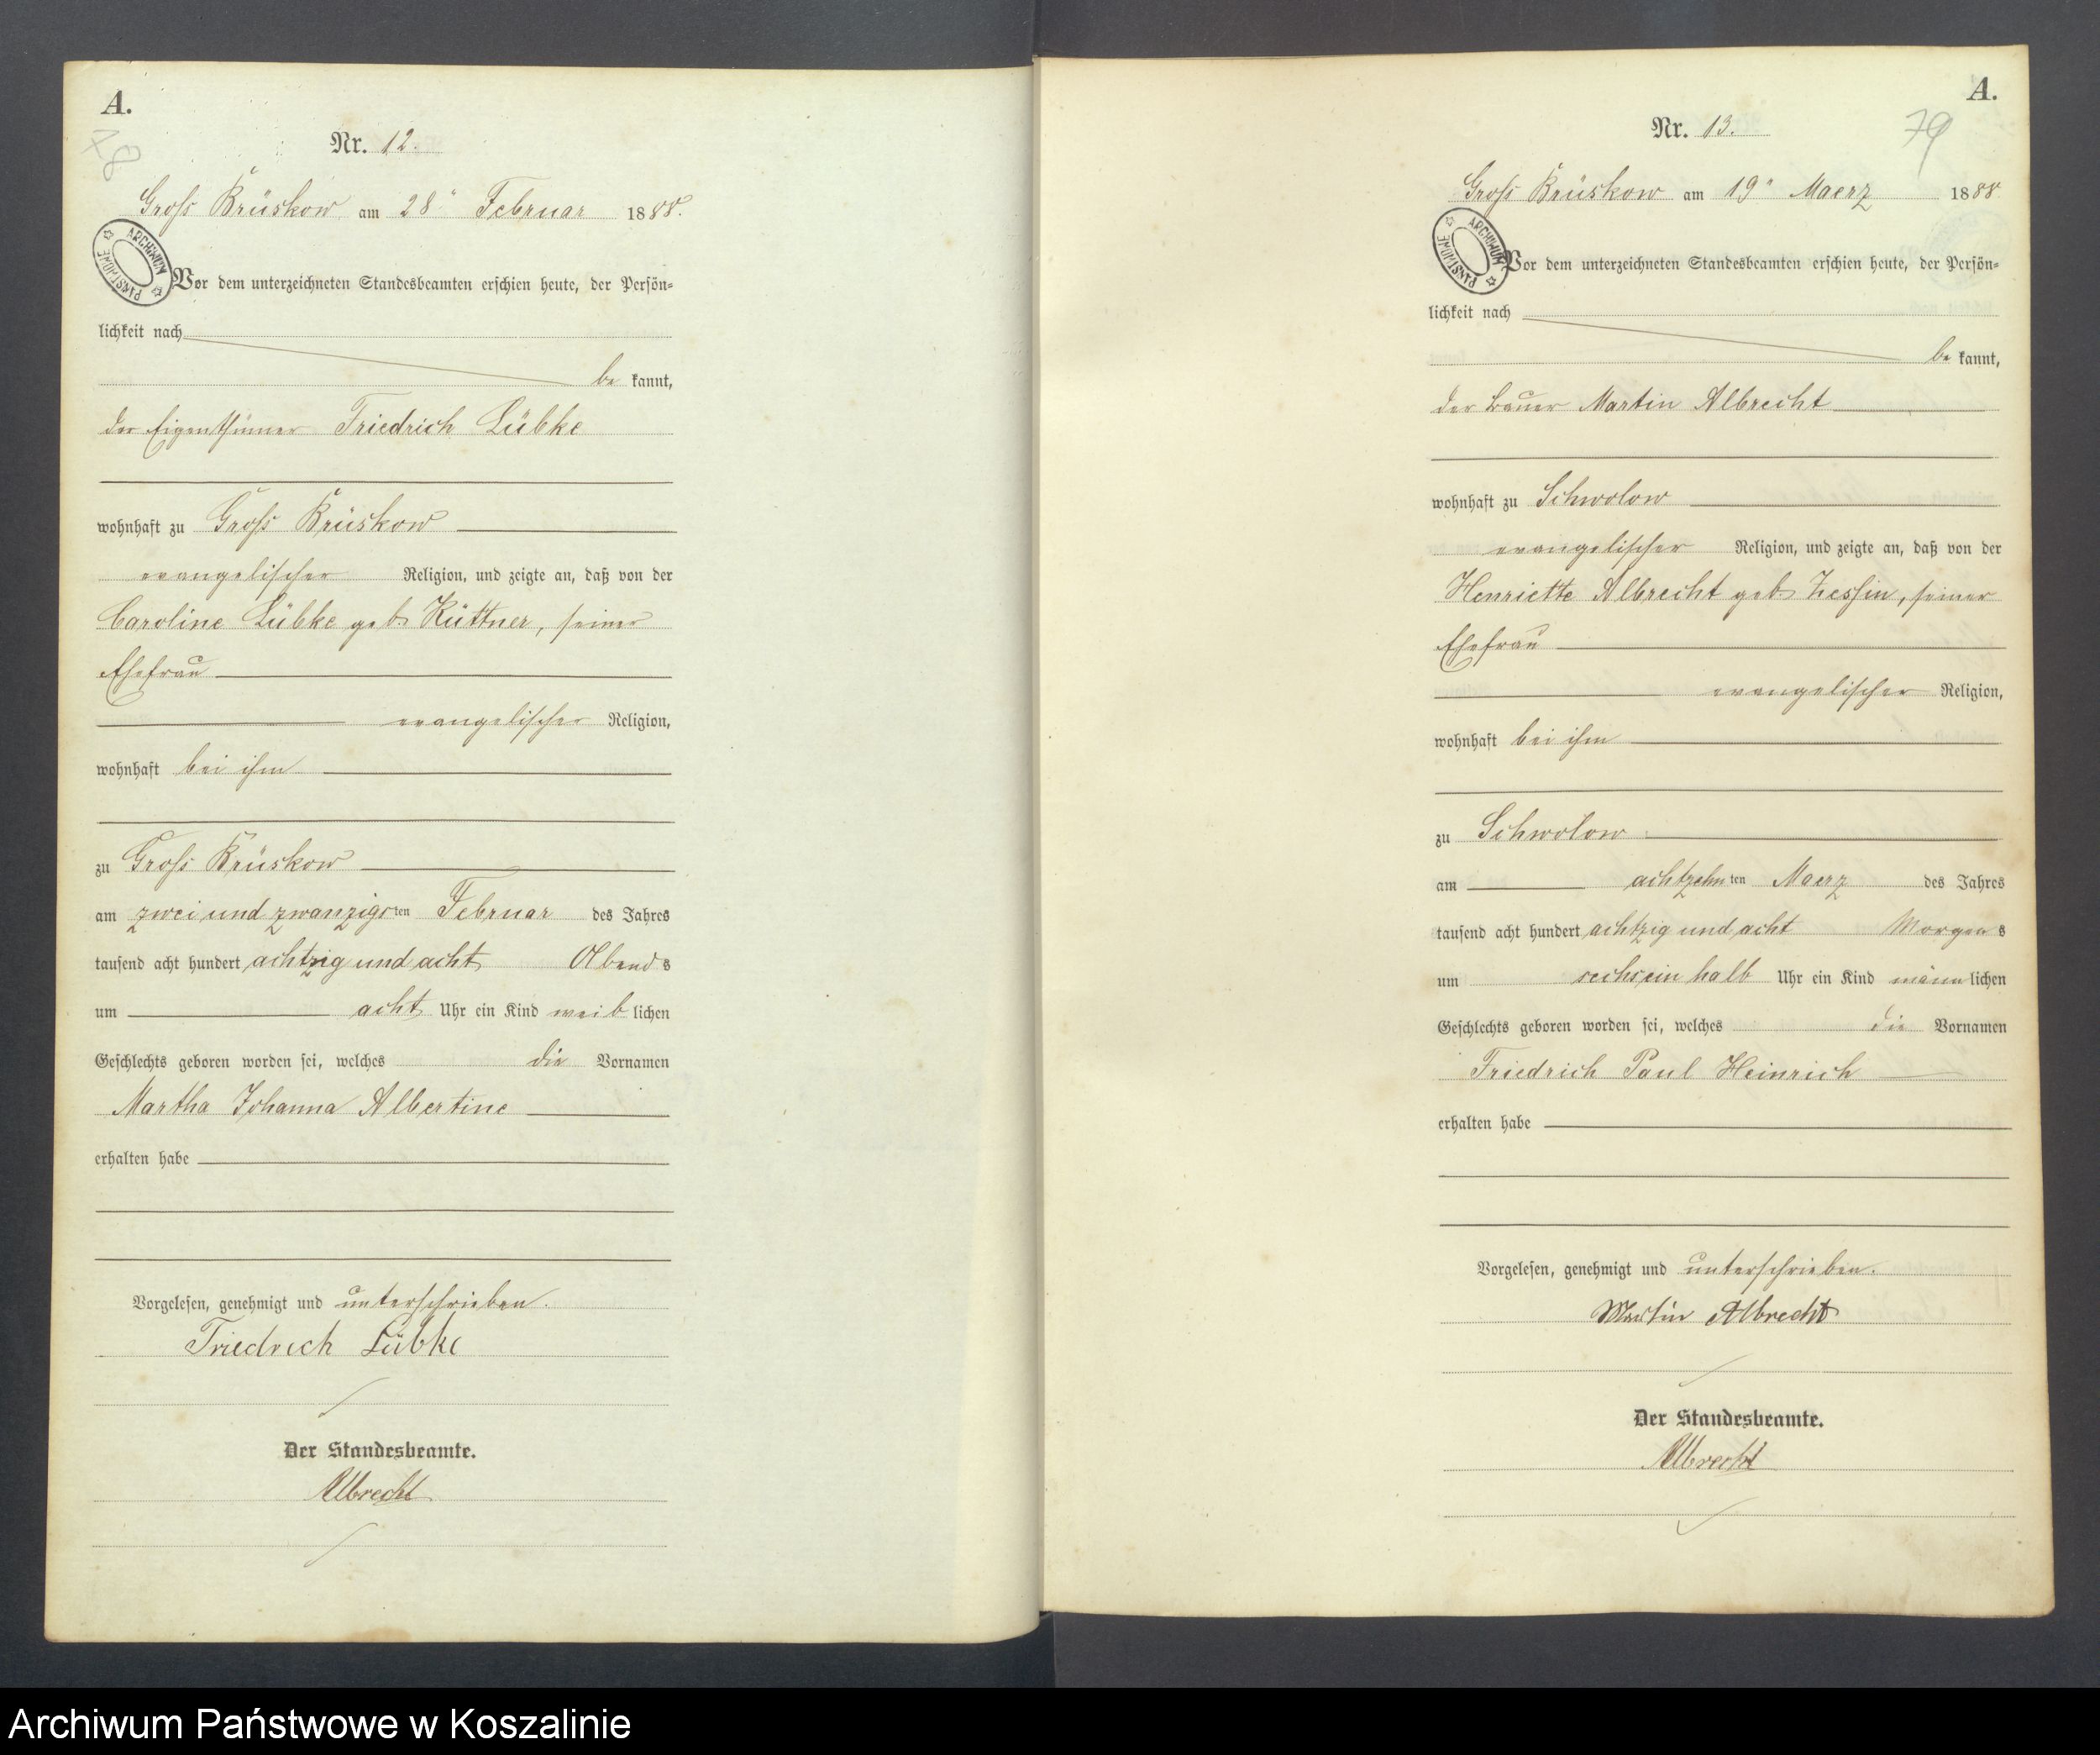 A.
78
Nr. 12.
Groß Brüskow am 28" Februar 1888.
ARCHIWUM PAŃSTWOWE
Vor dem unterzeichneten Standesbeamten erschien heute, der Persön=
lichkeit nach
be kannt,
der Eigenthümer Friedrich Lübke
wohnhaft zu Groß Brüskow
evangelischer Religion, und zeigte an, daß von der
Caroline Lübke geb. Küttner, seiner
Ehefrau
evangelischer Religion,
wohnhaft bei ihm
zu Groß Brüskow
am zwei und zwanzigsten Februar des Jahres
tausend acht hundert achtzig und acht Abends
um acht Uhr ein Kind weiblichen
Geschlechts geboren worden sei, welches die Vornamen
Martha Johanna Albertine
erhalten habe
Vorgelesen, genehmigt und unterschrieben.
Friedrich Lübke
Der Standesbeamte.
Albrecht
A.
79
Nr. 13.
Groß Brüskow am 19" Maerz 1888
ARCHIWUM PAŃSTWOWE
Vor dem unterzeichneten Standesbeamten erschien heute, der Persön=
lichkeit nach
be kannt,
der Bauer Martin Albrecht
wohnhaft zu Schwolow
evangelischer Religion, und zeigte an, daß von der
Henriette Albrecht geb. Zessin, seiner
Ehefrau
evangelischer Religion,
wohnhaft bei ihm
zu Schwolow
am achtzehnten Maerz des Jahres
tausend acht hundert achtzig und acht Morgens
um sechs ein halb Uhr ein Kind männlichen
Geschlechts geboren worden sei, welches die Vornamen
Friedrich Paul Heinrich
erhalten habe
Vorgelesen, genehmigt und unterschrieben.
Martin Albrecht
Der Standesbeamte.
Albrecht
Archiwum Państwowe w Koszalinie